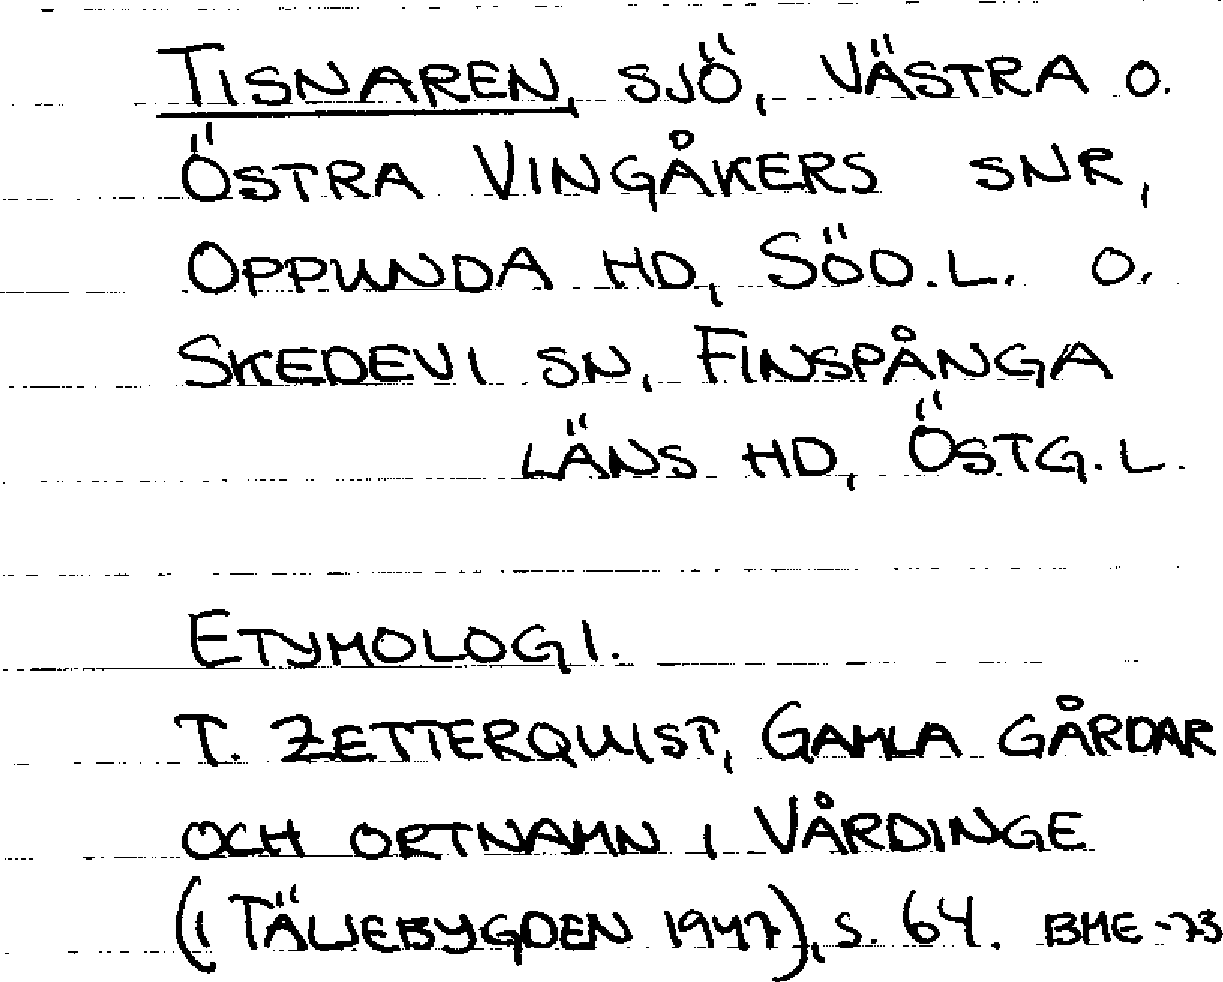 TISNAREN, SJÖ, VÄSTRA O.
ÖSTRA VINGÅKERS SNR,
OPPUNDA HD, SÖD.L. O.
SKEDEVI SN, FINSPÅNGA
LÄNS HD, ÖSTG.L.
ETYMOLOGI.
T. ZETTERQUIST, GAMLA GÅRDAR
OCH ORTNAMN I VÅRDINGE
(I TÄLJEBYGDEN 1947), S. 64. BME -73